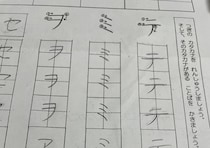 つぎの カタカナを れんしゅうしましょう。
そして、そのカタカナがある ことばを かきましょう。
テ テ テ テ
ミ ミ ミ ミ
ヲ ヲ ヲ
セ セ セ